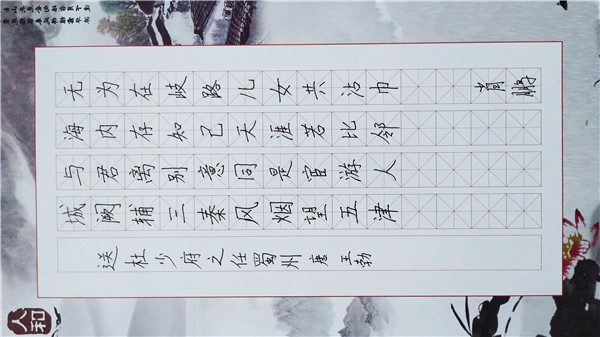 送杜少府之任蜀州 唐 王勃
城阙辅三秦风烟望五津
与君离别意同是宦游人
海内存知己天涯若比邻
无为在歧路儿女共沾巾 肖鹏
人和